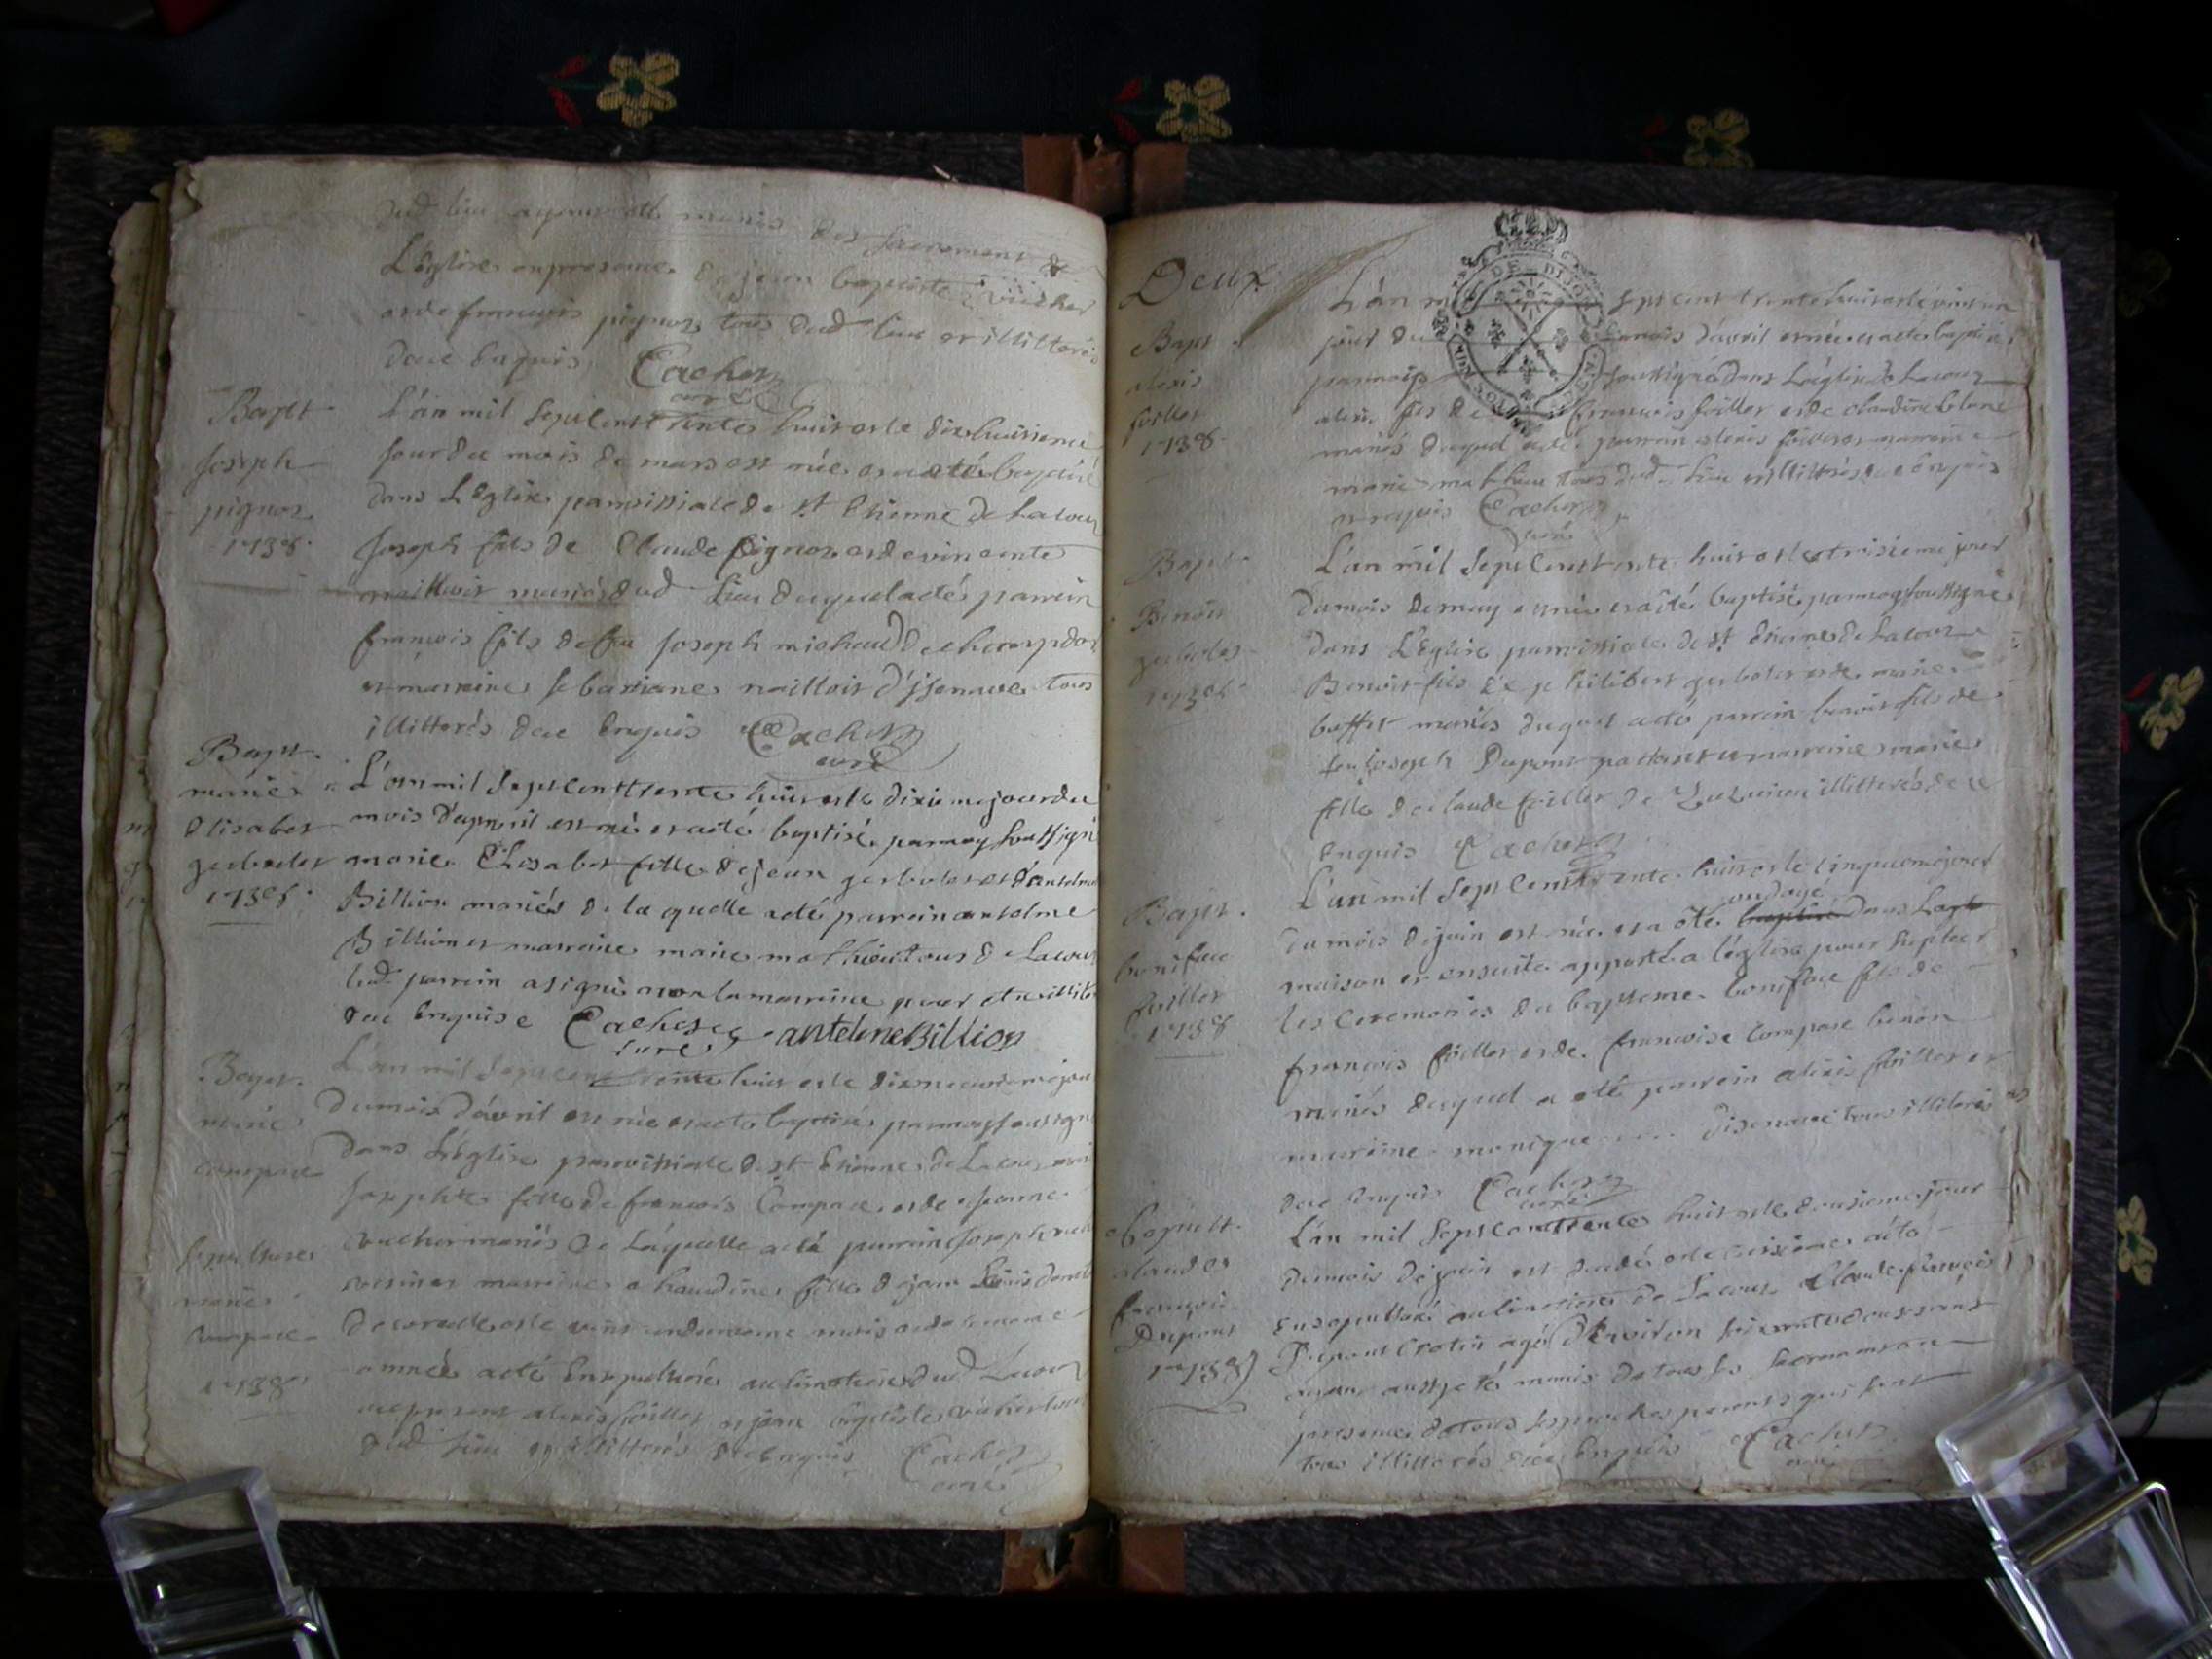 dud lieu ayant esté munis des sacrement de
L'église en presence de jean baptiste vucher
et de françois pignoz tous dud lieu et illitterés
de ce enquis Cachoz
curé
Bapt
Joseph
pignoz
1738
L'an mil sept cent trente huit et le dixhuitieme
jour du mois de mars est née et a eté baptisé
dans L'église parroissiale de st Etienne de Lacoux
Joseph fils de Claude Pignoz et de vincente
maillioir mariés dud lieu duquel a eté parrein
francois fils de feu joseph michaud de champdor
et marreine sebastiane naillioir d'jsenave tous
illitterés de ce Enquis Cachoz
curé
Bapt.
marie
Elisabet
gerbolet
1738
L'an mil sept cent trente huit et le dixieme jour du
mois d'apvril est né et a eté baptisé par moy soussigné
marie Elisabet fille de jean gerbolet et d'antelme
Billion mariés de laquelle a eté parrein antelme
Billion et marreine marie mathieu tous de Lacoux
led. parrein a signé non la marreine pour etre illit
de ce Enquise Cachoz antelme Billion
curé
Bapt.
marie
compace
L'an mil sept cent trente huit et le dixneuvieme jour
du mois d'avril est née et a eté baptisée par moy soussigné
dans L'église parroissiale de st Etienne de Lacoux marie
Josephte fille de francois Compace et de jeanne
vucher mariés de laquelle a eté parrein joseph
et marreine claudine fille de jean
Sepulture
marie
compace
1738
de et le mois et de la meme
année a eté Ensepulturée au cimetiere dud Lacoux
present alexis foillet et jean baptiste vucher tous
dud lieu et illitterés de ce Enquis Cachoz
curé
Deux
Bapt
alexis
foillet
1738
L'an mil sept cent trente huit et le vint un
jour du mois d'avril est née et a eté baptisé
par moy soussigné dans L'église de Lacoux
alexis fils de francois foillet et de claudine blanc
mariés duquel a eté parrein alexis foillet et marreine
marie mathieu tous dud. lieu illitterés de ce enquis
et requis Cachoz
curé
Bapt
Benoit
gerbolet
1738
L'an mil sept cent trente huit et le troisieme jour
du mois de may est née et a eté baptisé par moy soussigné
dans L'église parroissiale de st Etienne de Lacoux
Benoit fils de philibert gerbolet et de marie
buffet mariés duquel a eté parrein benoit fils de
feu joseph Dupont et marreine marie
fille de claude foillet de illitterés de ce
Enquis Cachoz
Bapt.
boniface
foillet
1738
L'an mil sept cent trente huit et le cinquiemejour
ondoyé
du mois de juin est née et a eté baptisé dans La
maison et ensuite apporté a l'église pour supleer
les ceremonies du bapteme boniface fils de
françois foillet et de francoise compace benon
mariés duquel a eté parrein alexis foillet et
marreine monique .... d'isenave tous illiterés
de ce Enquis Cachoz
curé
claude
francois
Dupont
1738
L'an mil sept cent trente huit et le dousieme jour
du mois de juin est decedé et le treisieme a eté
ensepulturé au cimetiere de Lacoux Claude françois
Dupont Crotin agé D'environ soixante douse ans
ayant eté munis de tous les sacremens en
presence de tous ses proches parents qui sont
tous illitterés de ce Enquis Cachoz
curé